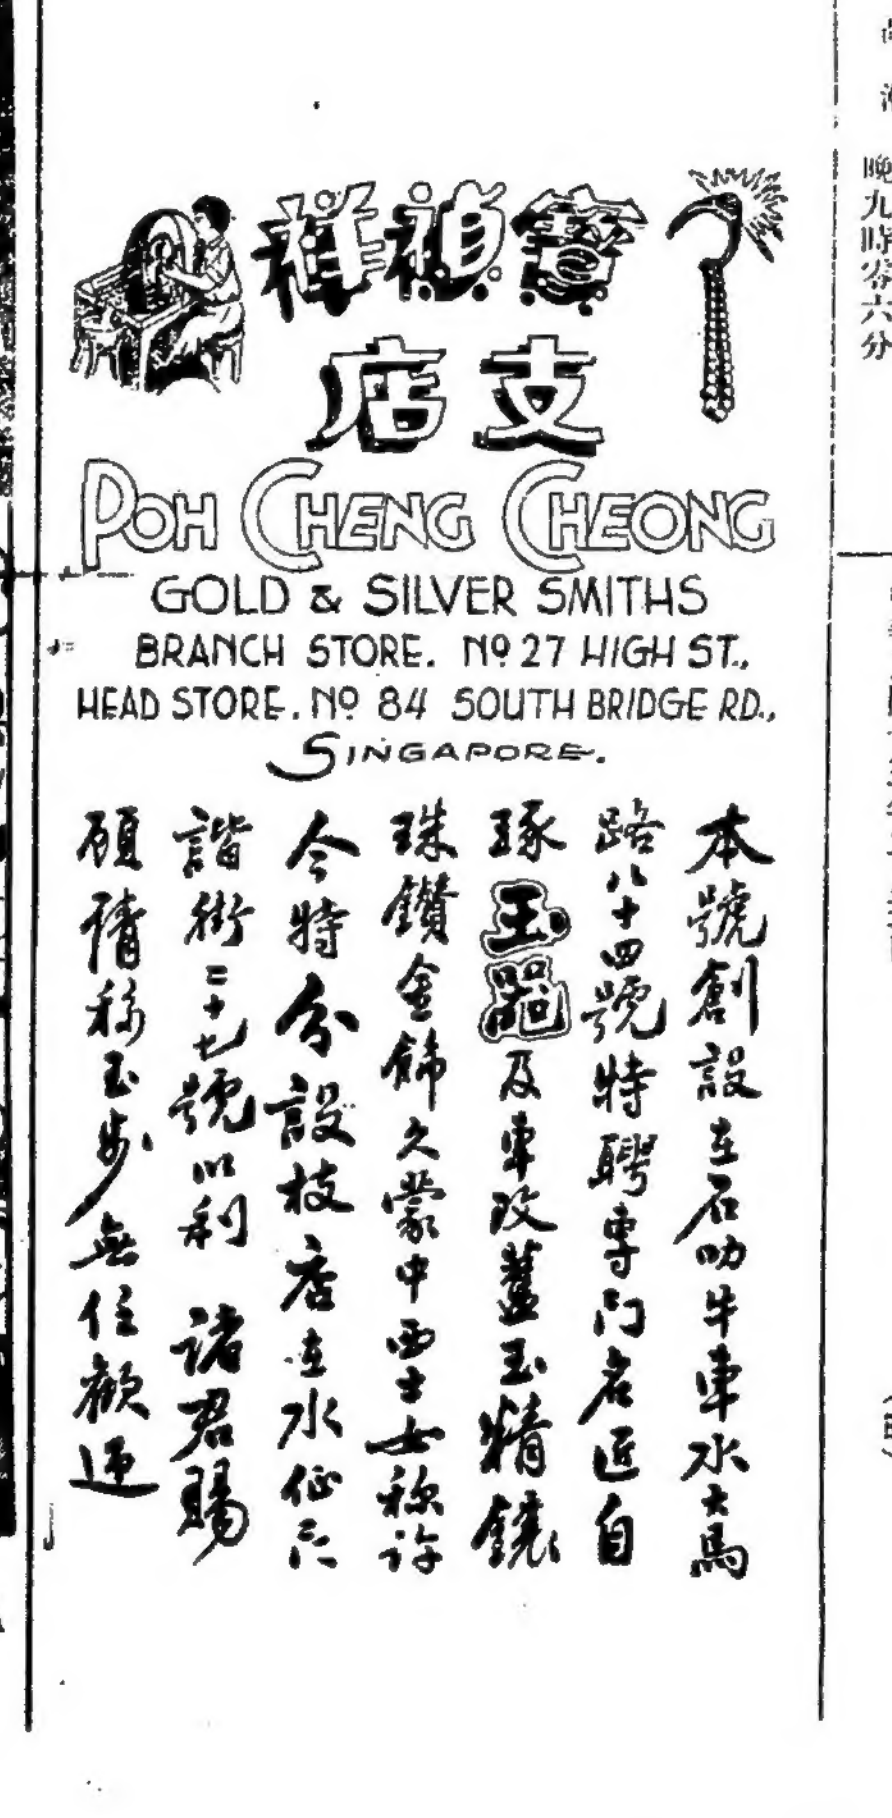 寶禎祥
支店
POH CHENG CHEONG
GOLD & SILVER SMITHS
BRANCH STORE. No 27 HIGH ST.,
HEAD STORE. No 84 SOUTH BRIDGE RD.,
SINGAPORE.
本號創設在石叻牛車水大馬
路八十四號特聘專門名匠自
琢玉器及車改蓋玉精鑲
珠鑽金飾久蒙中西士女称許
今特分設枝店在水仙
諧街二十七號以利 諸君賜
顧請移玉步無任歡迎
晚九時零六分